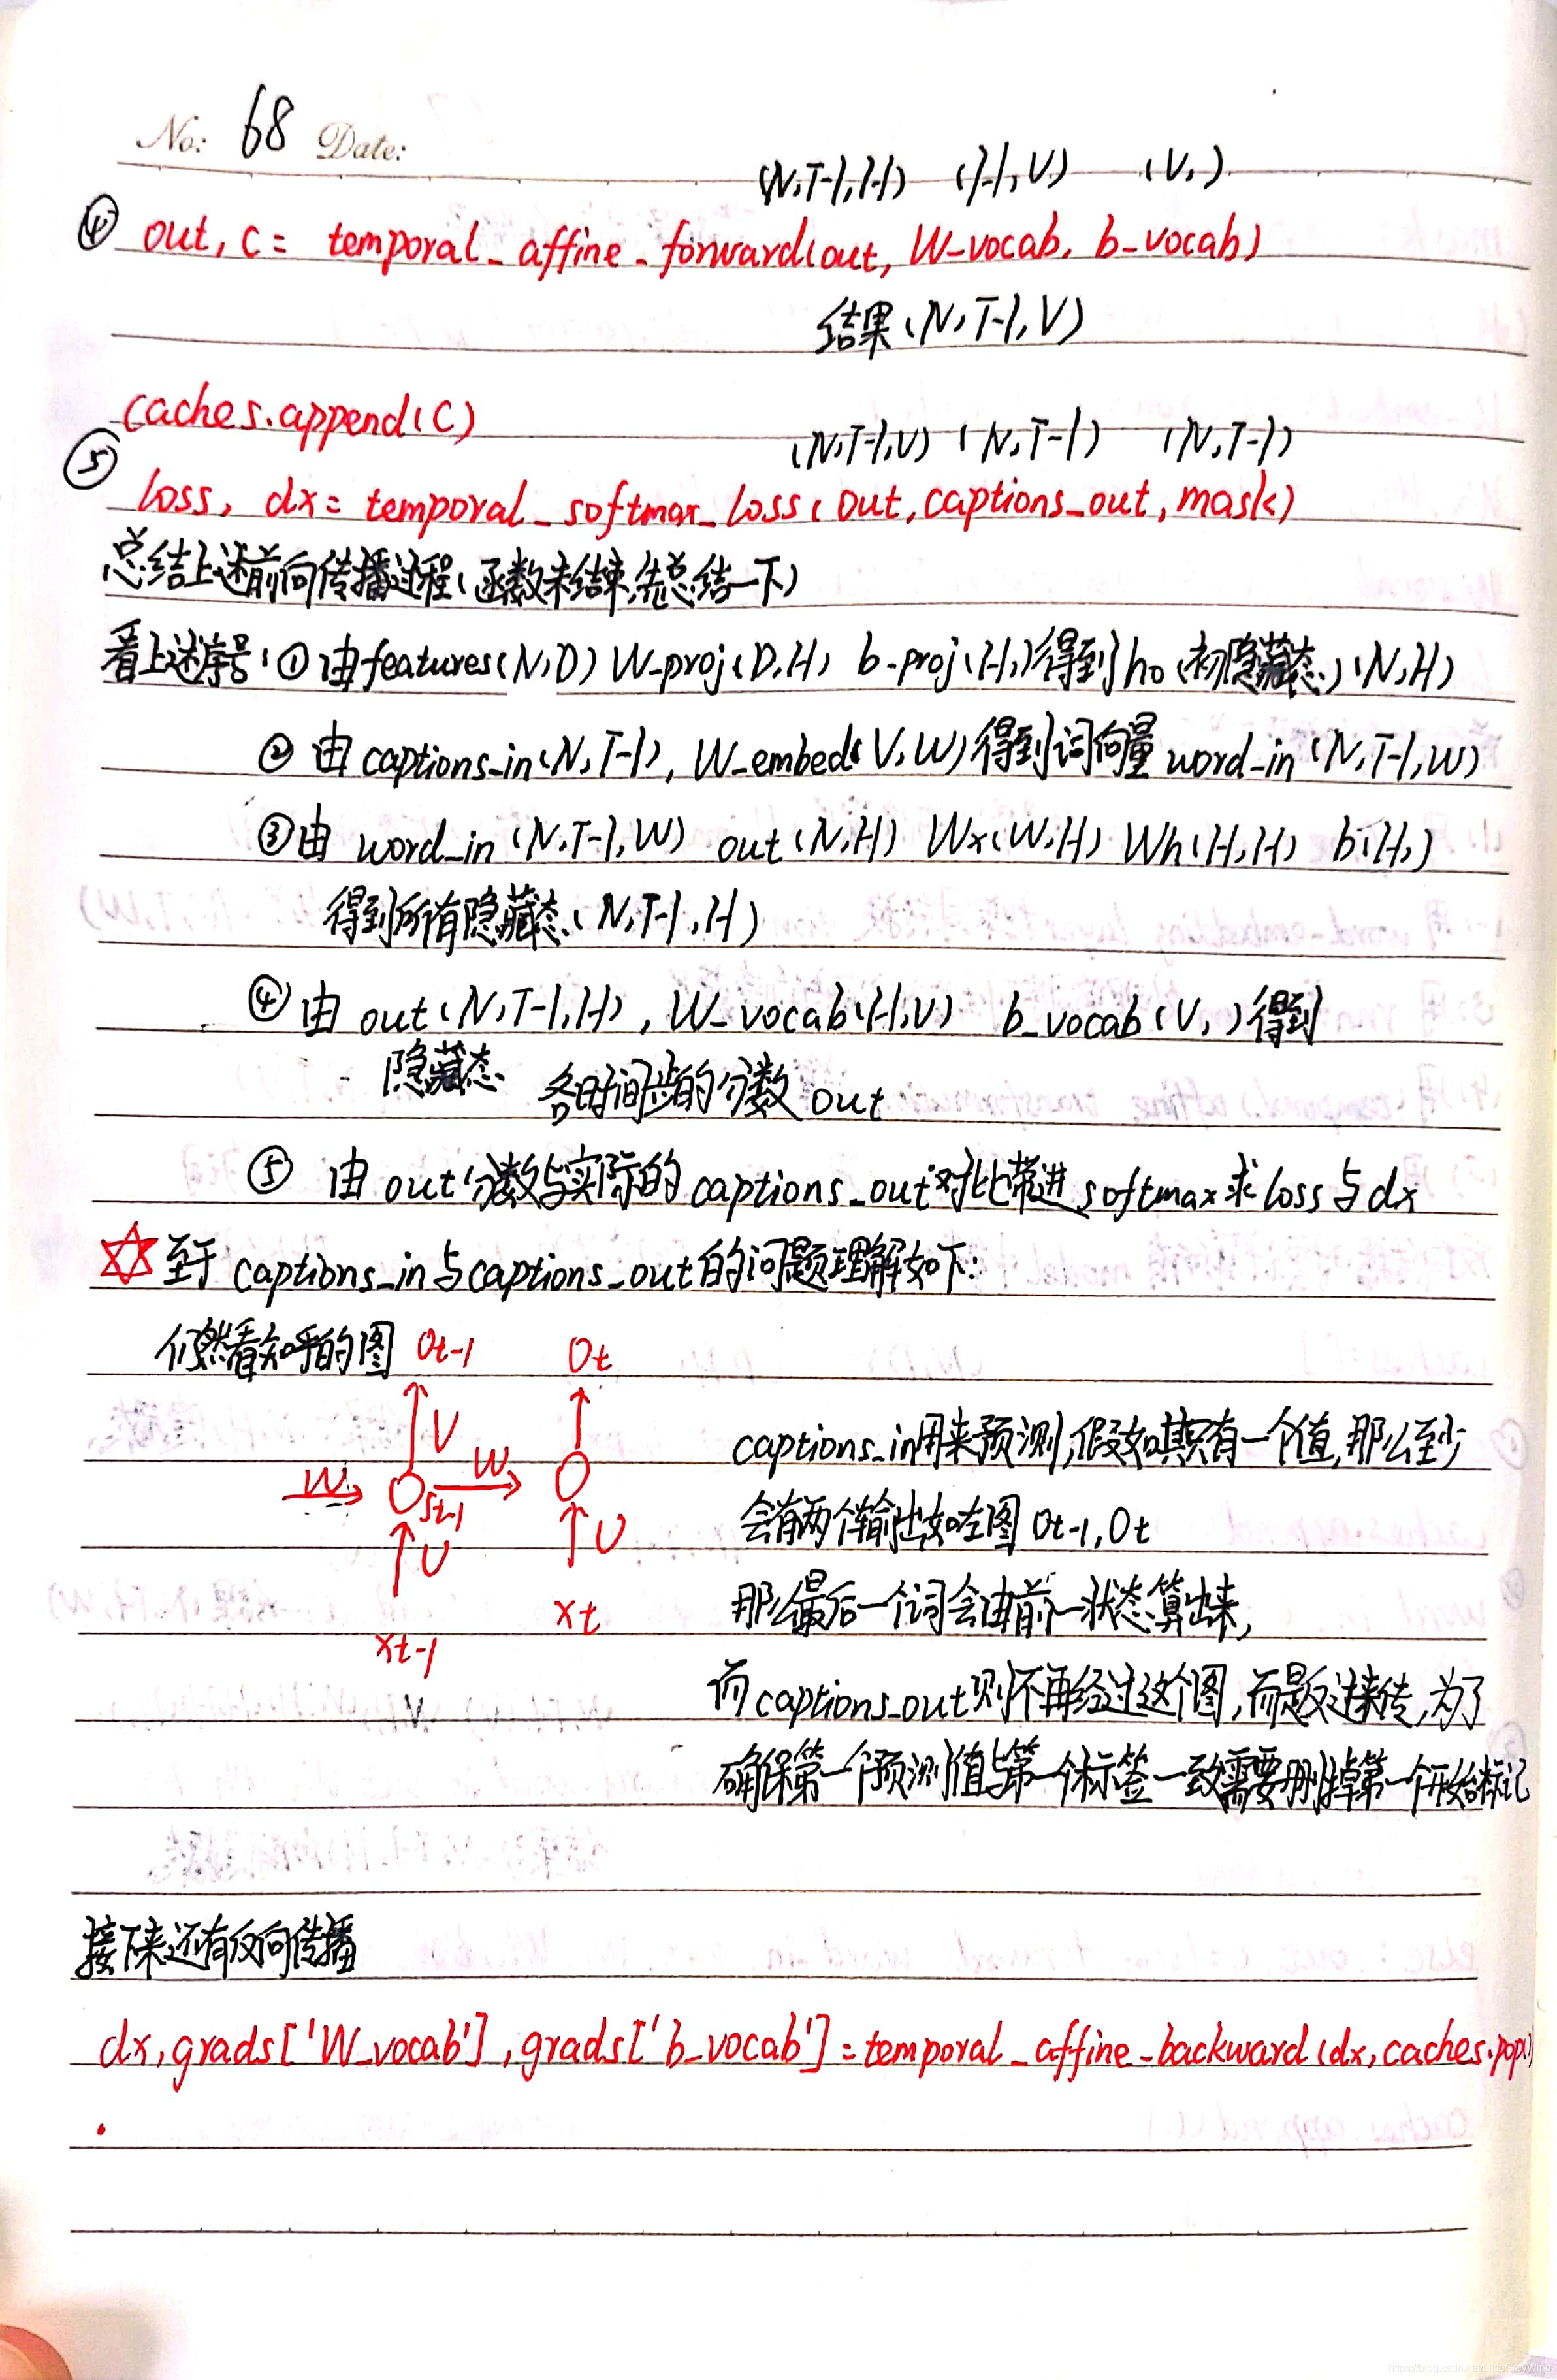 No: 68 Date:
(N,T-1,H) (H,V) (V,)
④ out, c = temporal_affine_forward(out, W_vocab, b_vocab)
结果(N,T-1,V)
caches.append(c)
(N,T-1,V) (N,T-1) (N,T-1)
⑤ loss, dx = temporal_softmax_loss(out, captions_out, mask)
总结上述前向传播过程(函数未结束,先总结一下)
看上述序号:①由features(N,D) W-proj(D,H) b-proj(H,)得到h0(初隐藏态)(N,H)
②由captions_in(N,T-1), W_embed(V,W)得到词向量word_in(N,T-1,W)
③由word_in(N,T-1,W) out(N,H) Wx(W,H) Wh(H,H) b(H,)
得到所有隐藏态(N,T-1,H)
④由out(N,T-1,H), W_vocab(H,V) b_vocab(V,)得到
隐藏态 各时间步的分数out
⑤ 由out分数与实际的captions_out对比带进softmax求loss与dx
至于captions_in与captions_out的问题理解如下:
仍然看知乎的图 Ot-1 Ot
V
W St-1 W
U U
xt-1 xt
captions_in用来预测,假如其只有一个值,那么至少
会有两个输出如左图Ot-1,Ot
那么最后一个词会由前一状态算出来,
而captions_out则不再经过这个图,而是反过来传,为了
确保第一个预测值与第一个标签一致需要删掉第一个开始标记
接下来还有反向传播
dx, grads['W_vocab'], grads['b_vocab'] = temporal_affine_backward(dx, caches.pop())